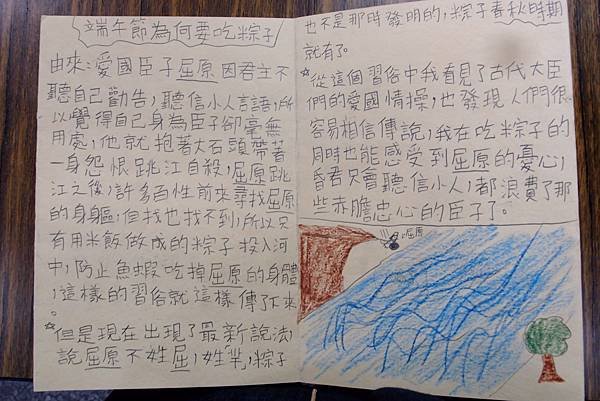 端午節為何要吃粽子
由來：愛國臣子屈原因君主不
聽自己勸告，聽信小人言語，所
以覺得自己身為臣子卻毫無
用處，他就抱著大石頭帶著
一身怨恨跳江自殺，屈原跳
江之後，許多百性前來尋找屈原
的身軀，但找也找不到，所以只
有用米飯做成的粽子投入河
中，防止魚蝦吃掉屈原的身體
，這樣的習俗就這樣傳了下來
。
☆但是現在出現了最新說法，
說屈原不姓屈，姓「羋，粽子
也不是那時發明的，粽子春秋時期
就有了。
☆從這個習俗中我看見了古代大臣
們的愛國情操，也發現人們很
容易相信傳說，我在吃粽子的
同時也能感受到屈原的憂心，
昏君只會聽信小人，都浪費了那
些赤膽忠心的臣子了。
屈原